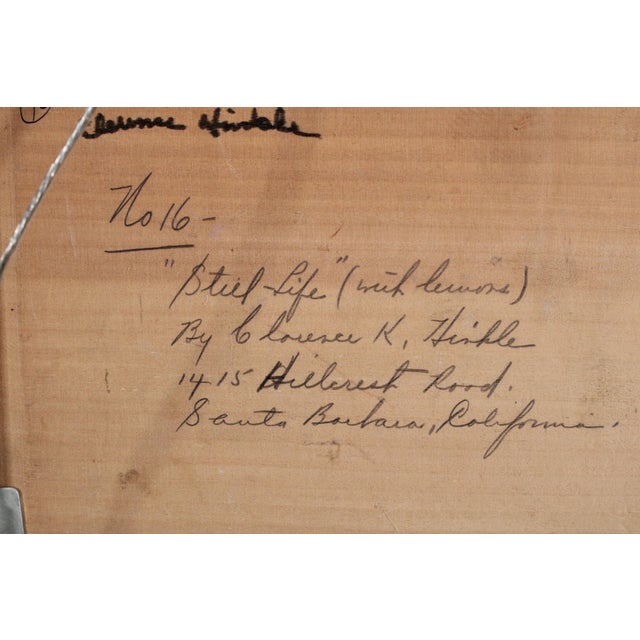 Clarence Hinkle
No 16 -
"Still-Life" (with lemons)
By Clarence K. Hinkle
1415 Hillcrest Road.
Santa Barbara, California.